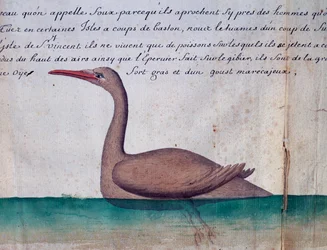 eau qu'on appelle Foux parcequ'ils aprochent Sy pres des hommes qu'o
Tüer en certaines Isles a coups de baston, nous le tuames d'un coup de Fu
isle de St Vincent, ils ne vivent que de poissons Surlesquels ils se jettent a c
dus du haut des airs ainsy que l'Epervier Fait Surle gibier, ils Sont de la gro
ne Oije, Fort gras et d'un goust marecajeux.